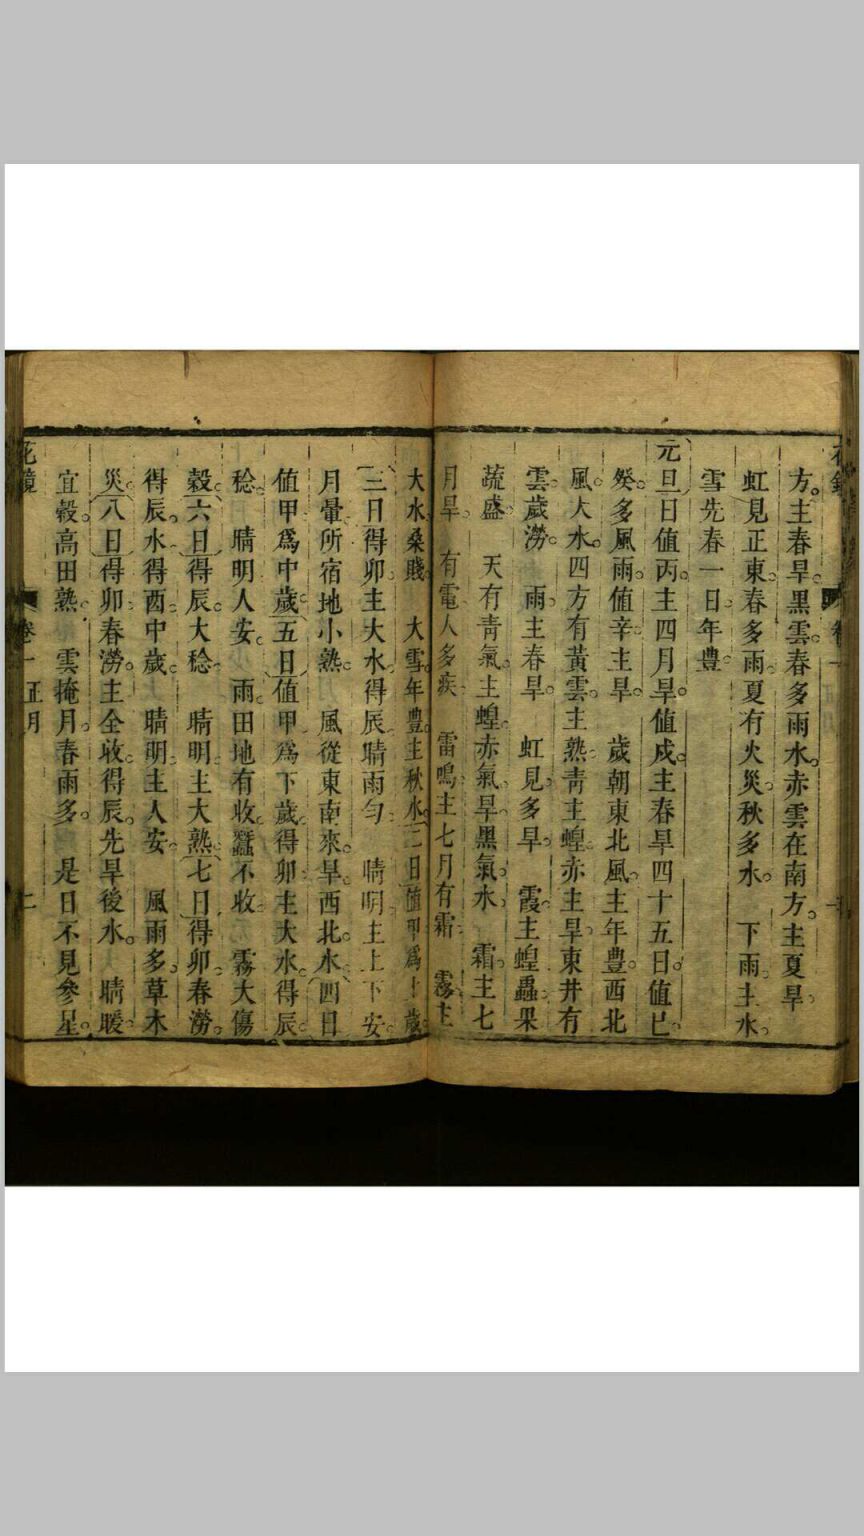 方。主春旱。黑雲。春多雨水。赤雲在南方。主夏旱。
虹見正東。春多雨。夏有火災。秋多水。 下雨主水。
雪先春一日年豊
元旦日值丙。主四月旱。值戍。主春旱四十五日。值巳
癸。多風雨。值辛主旱。 歲朝東北風。主年豊。西北
風。大水。四方有黃雲。主熟。靑主蝗。赤主旱。東井有
雲歲澇。 雨主春旱。 虹見多旱。 霞主蝗蟲。果
蔬盛。 天有靑氣。主蝗。赤氣旱。黑氣水。 霜主七
月旱。 有電人多疾 雷鳴主七月有霜。 霧主
大水桑賤。 大雪年豊。主秋水。二日值甲爲上歲。
三日得卯主大水。得辰晴雨勻。 晴明主上下安。
月暈所宿地小熟。 風從東南來旱。西北水。四日
值甲爲中歲。五日值甲爲下歲。得卯主大水。得辰
稔。 晴明人安。 雨田地有收。蠶不收。 霧大傷
穀。六日得辰大稔。 晴明主大熟。七日得卯春澇。
得辰水。得酉中歲。 晴明主人安。 風雨多草木
災。八日得卯春澇。主全收。得辰先旱後水。 晴暖
宜穀。高田熟。 雲掩月。春雨多。 是日不見參星。
花鏡 卷一 正月 二